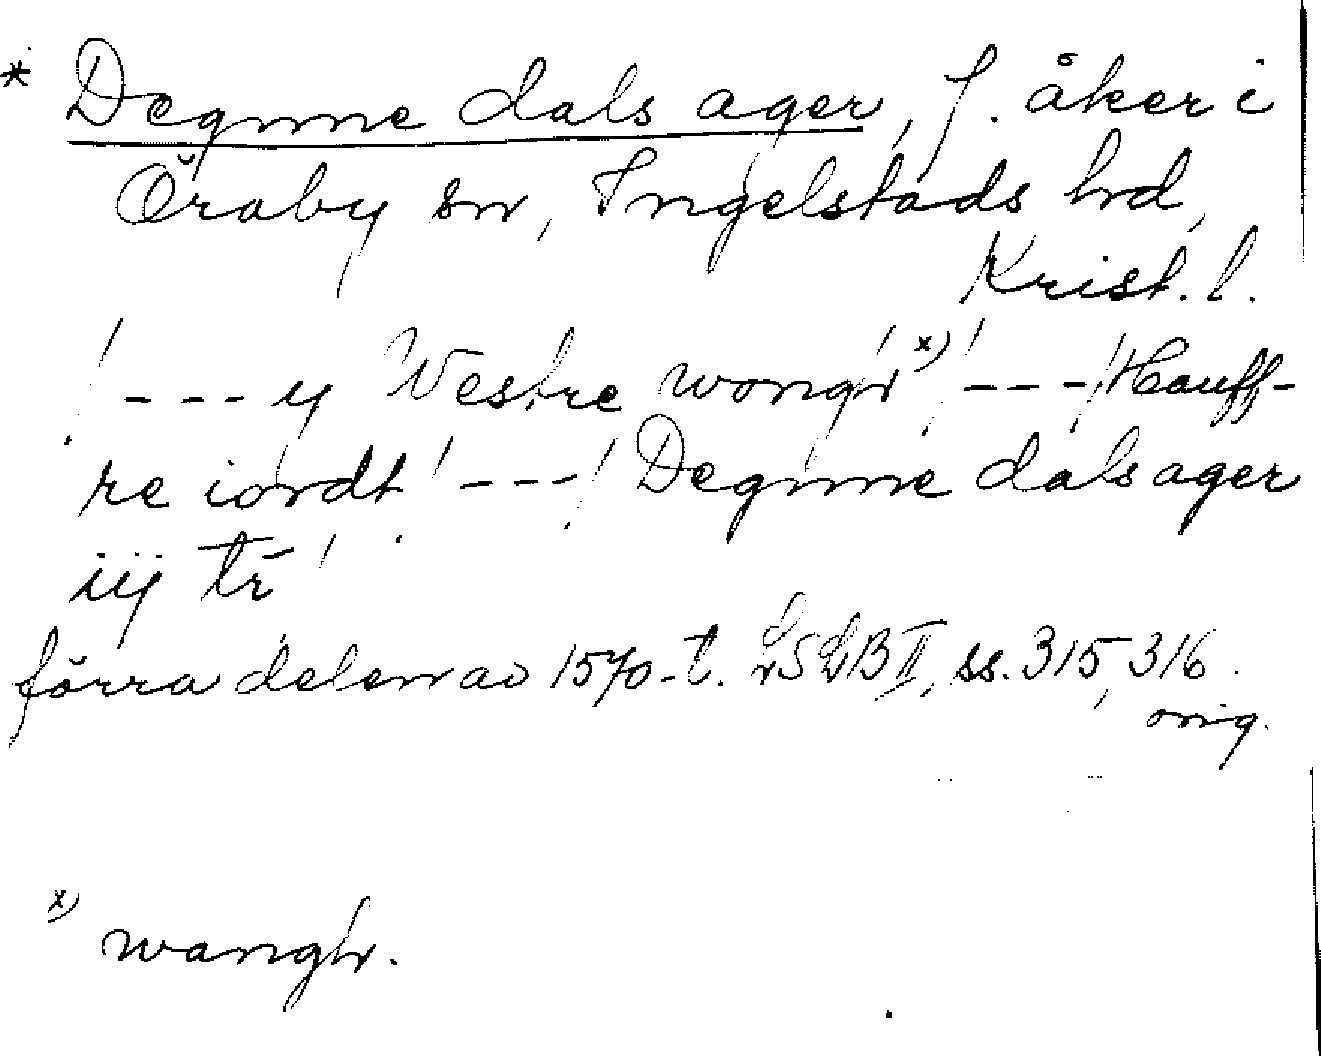 * Degnne dals ager, f. åker i
Öraby sn, Ingelstads hrd,
Krist. l.
/---y Vestre wongh x) /---/ Hauff-
re iordt /---/ Degnne dals ager
iij tr /
förra delen av 1570-t. LSLB II, ss. 315, 316.
orig.
x) wangh.